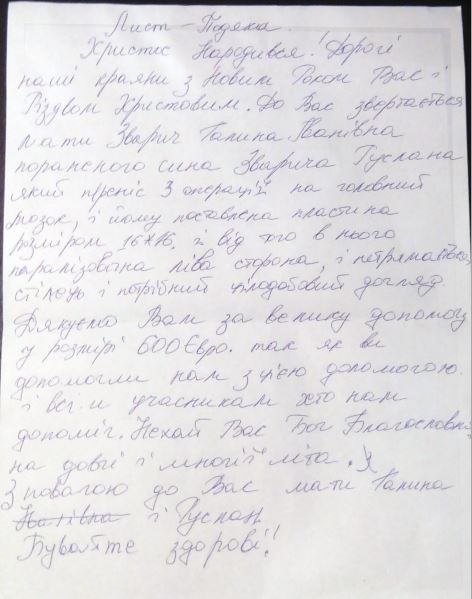 Лист - Подяка.
Христос Народився! Дорогі
наші краяни з Новим Роком Вас і
Різдвом Христовим. До Вас звертається
мати Зварич Галина Іванівна
пораненого сина Зварича Руслана
який пі​реніс 3 операції на головний
мозок, і йому поставлена пластина
розміром 16х16. і від того в нього
паралізовична ліва сторона, і не
стілець і потрібний цілодобовий догляд.
Дякуємо Вам за велику допомогу
у розмірі 600 Євро. так як ви
допомогли нам з цією допомогою.
і всі учасникам хто нам
допоміг. Нехай Вас Бог Благословить
на довгі і многії літа.
З повагою до Вас мати Галина
Іванівна і Руслан
Бувайте здорові!